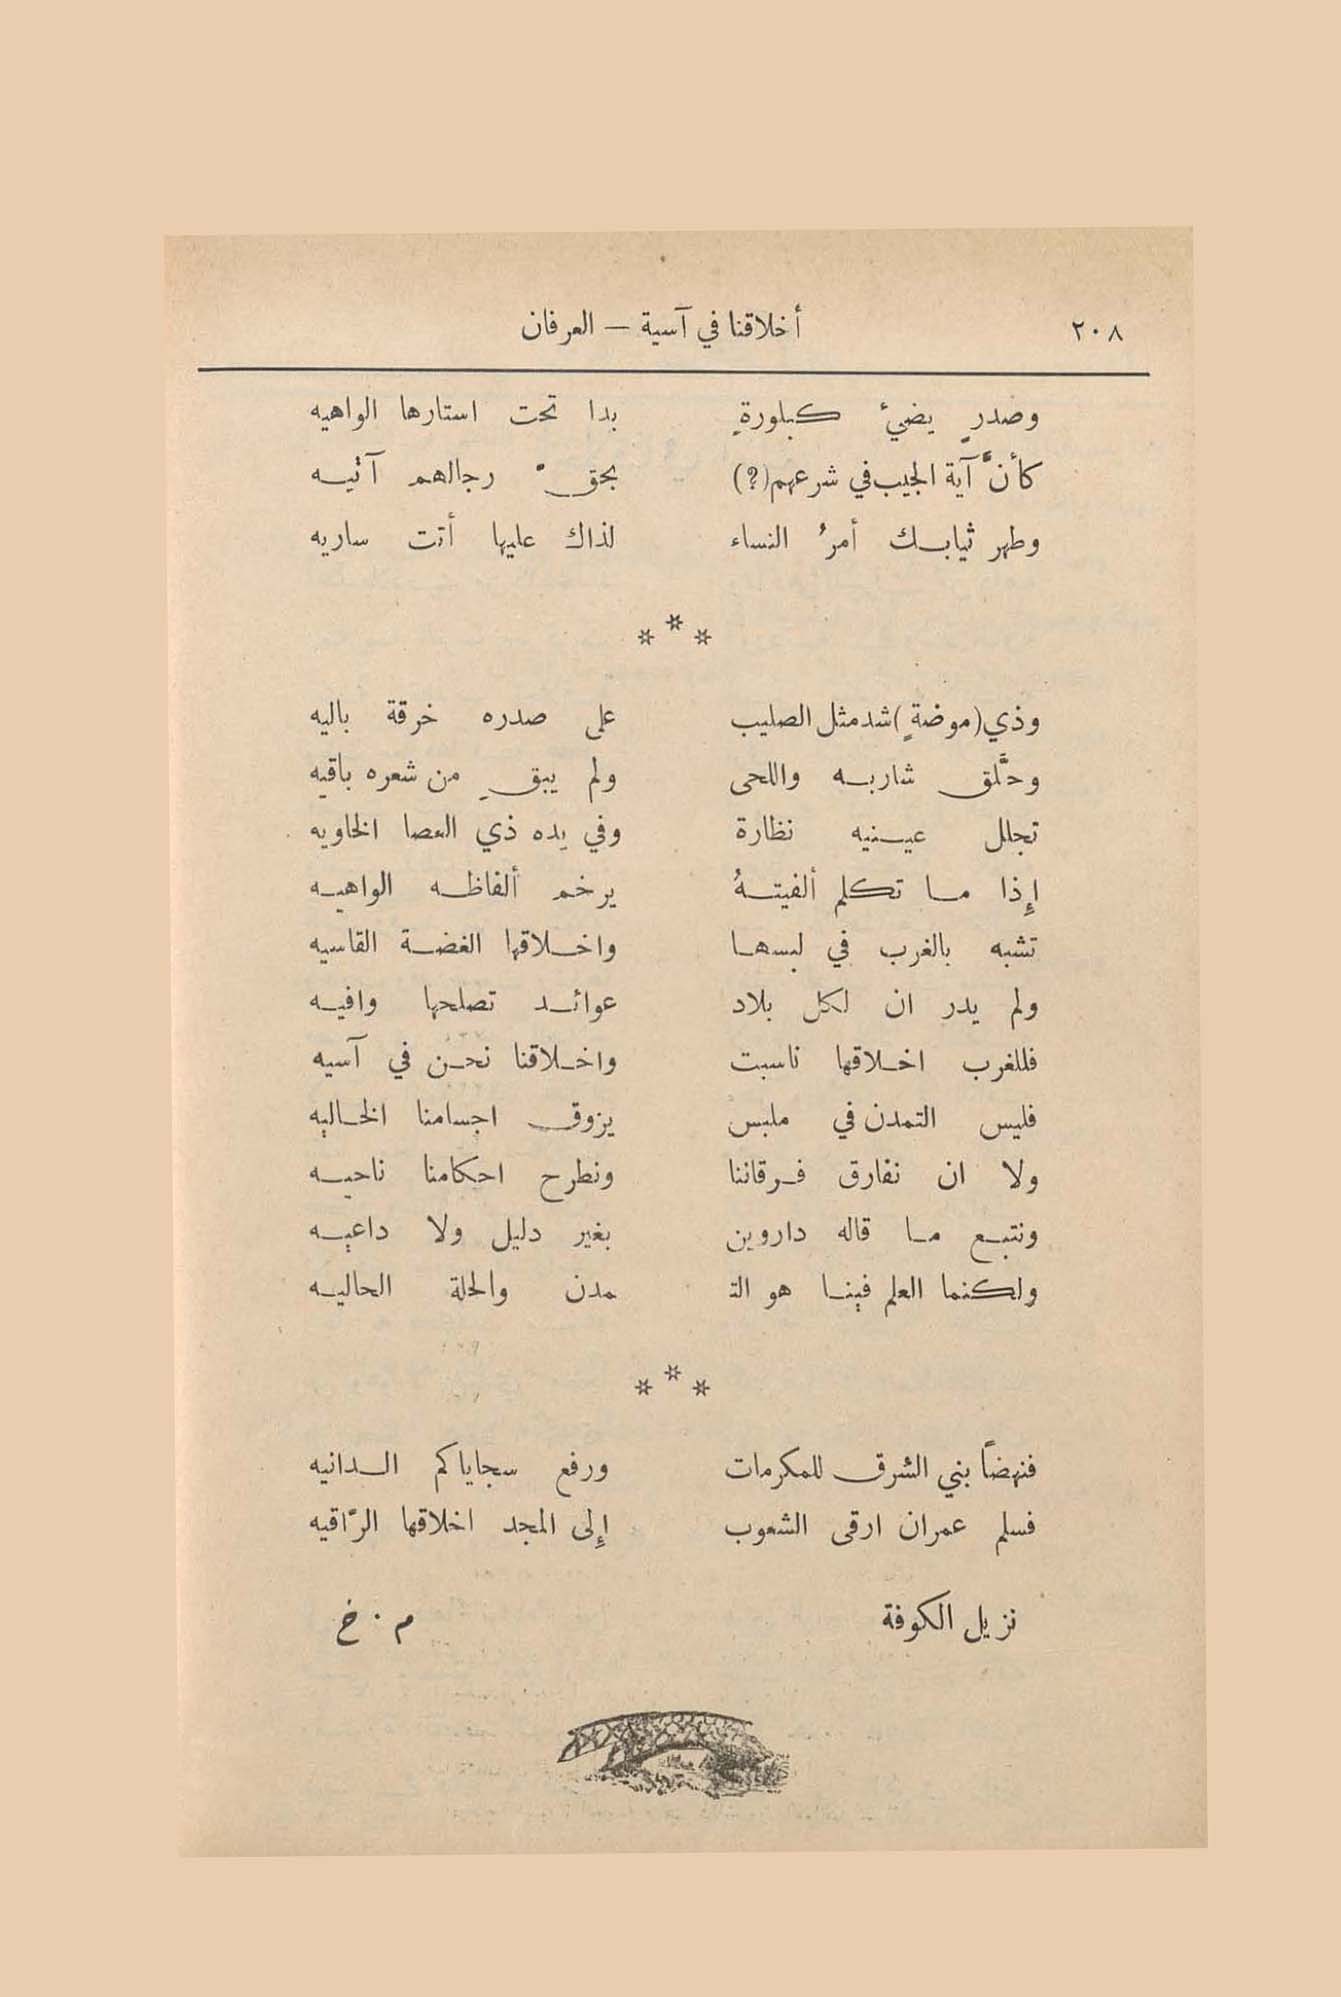 ٢٠٨ أخلاقنا في آسية — العرفان
وصدرٍ يضيءُ كبلورةٍ بدا تحت استارها الواهيه
كأنَّ آية الجيب في شرعهم (؟) بحق رجالهم آتيه
وطهر ثيابك أمرُ النساء لذاك عليها أتت ساريه
***
وذي (موضةٍ) شد مثل الصليب على صدره خرقة باليه
وحلَّق شاربه واللحى ولم يبقِ من شعره باقيه
تجلل عينيه نظارة وفي يده ذي العصا الخاويه
إِذا ما تكلم ألفيتهُ يرخم ألفاظه الواهيه
تشبه بالغرب في لبسها واخلاقها الغضة القاسيه
ولم يدر ان لكل بلاد عوائد تصلحها وافيه
فللغرب اخلاقها ناسبت واخلاقنا نحن في آسيه
فليس التمدن في ملبس يزوق اجسامنا الخاليه
ولا ان نفارق فرقاننا ونطرح احكامنا ناحيه
ونتبع ما قاله داروين بغير دليل ولا داعيه
ولكنما العلم فينا هو التـ ـمدن والحلة الحاليه
***
فنهضاً بني الشرق للمكرمات ورفع سجاياكم الدانيه
فسلم عمران ارقى الشعوب إِلى المجد اخلاقها الرَّاقيه
نزيل الكوفة م . خ